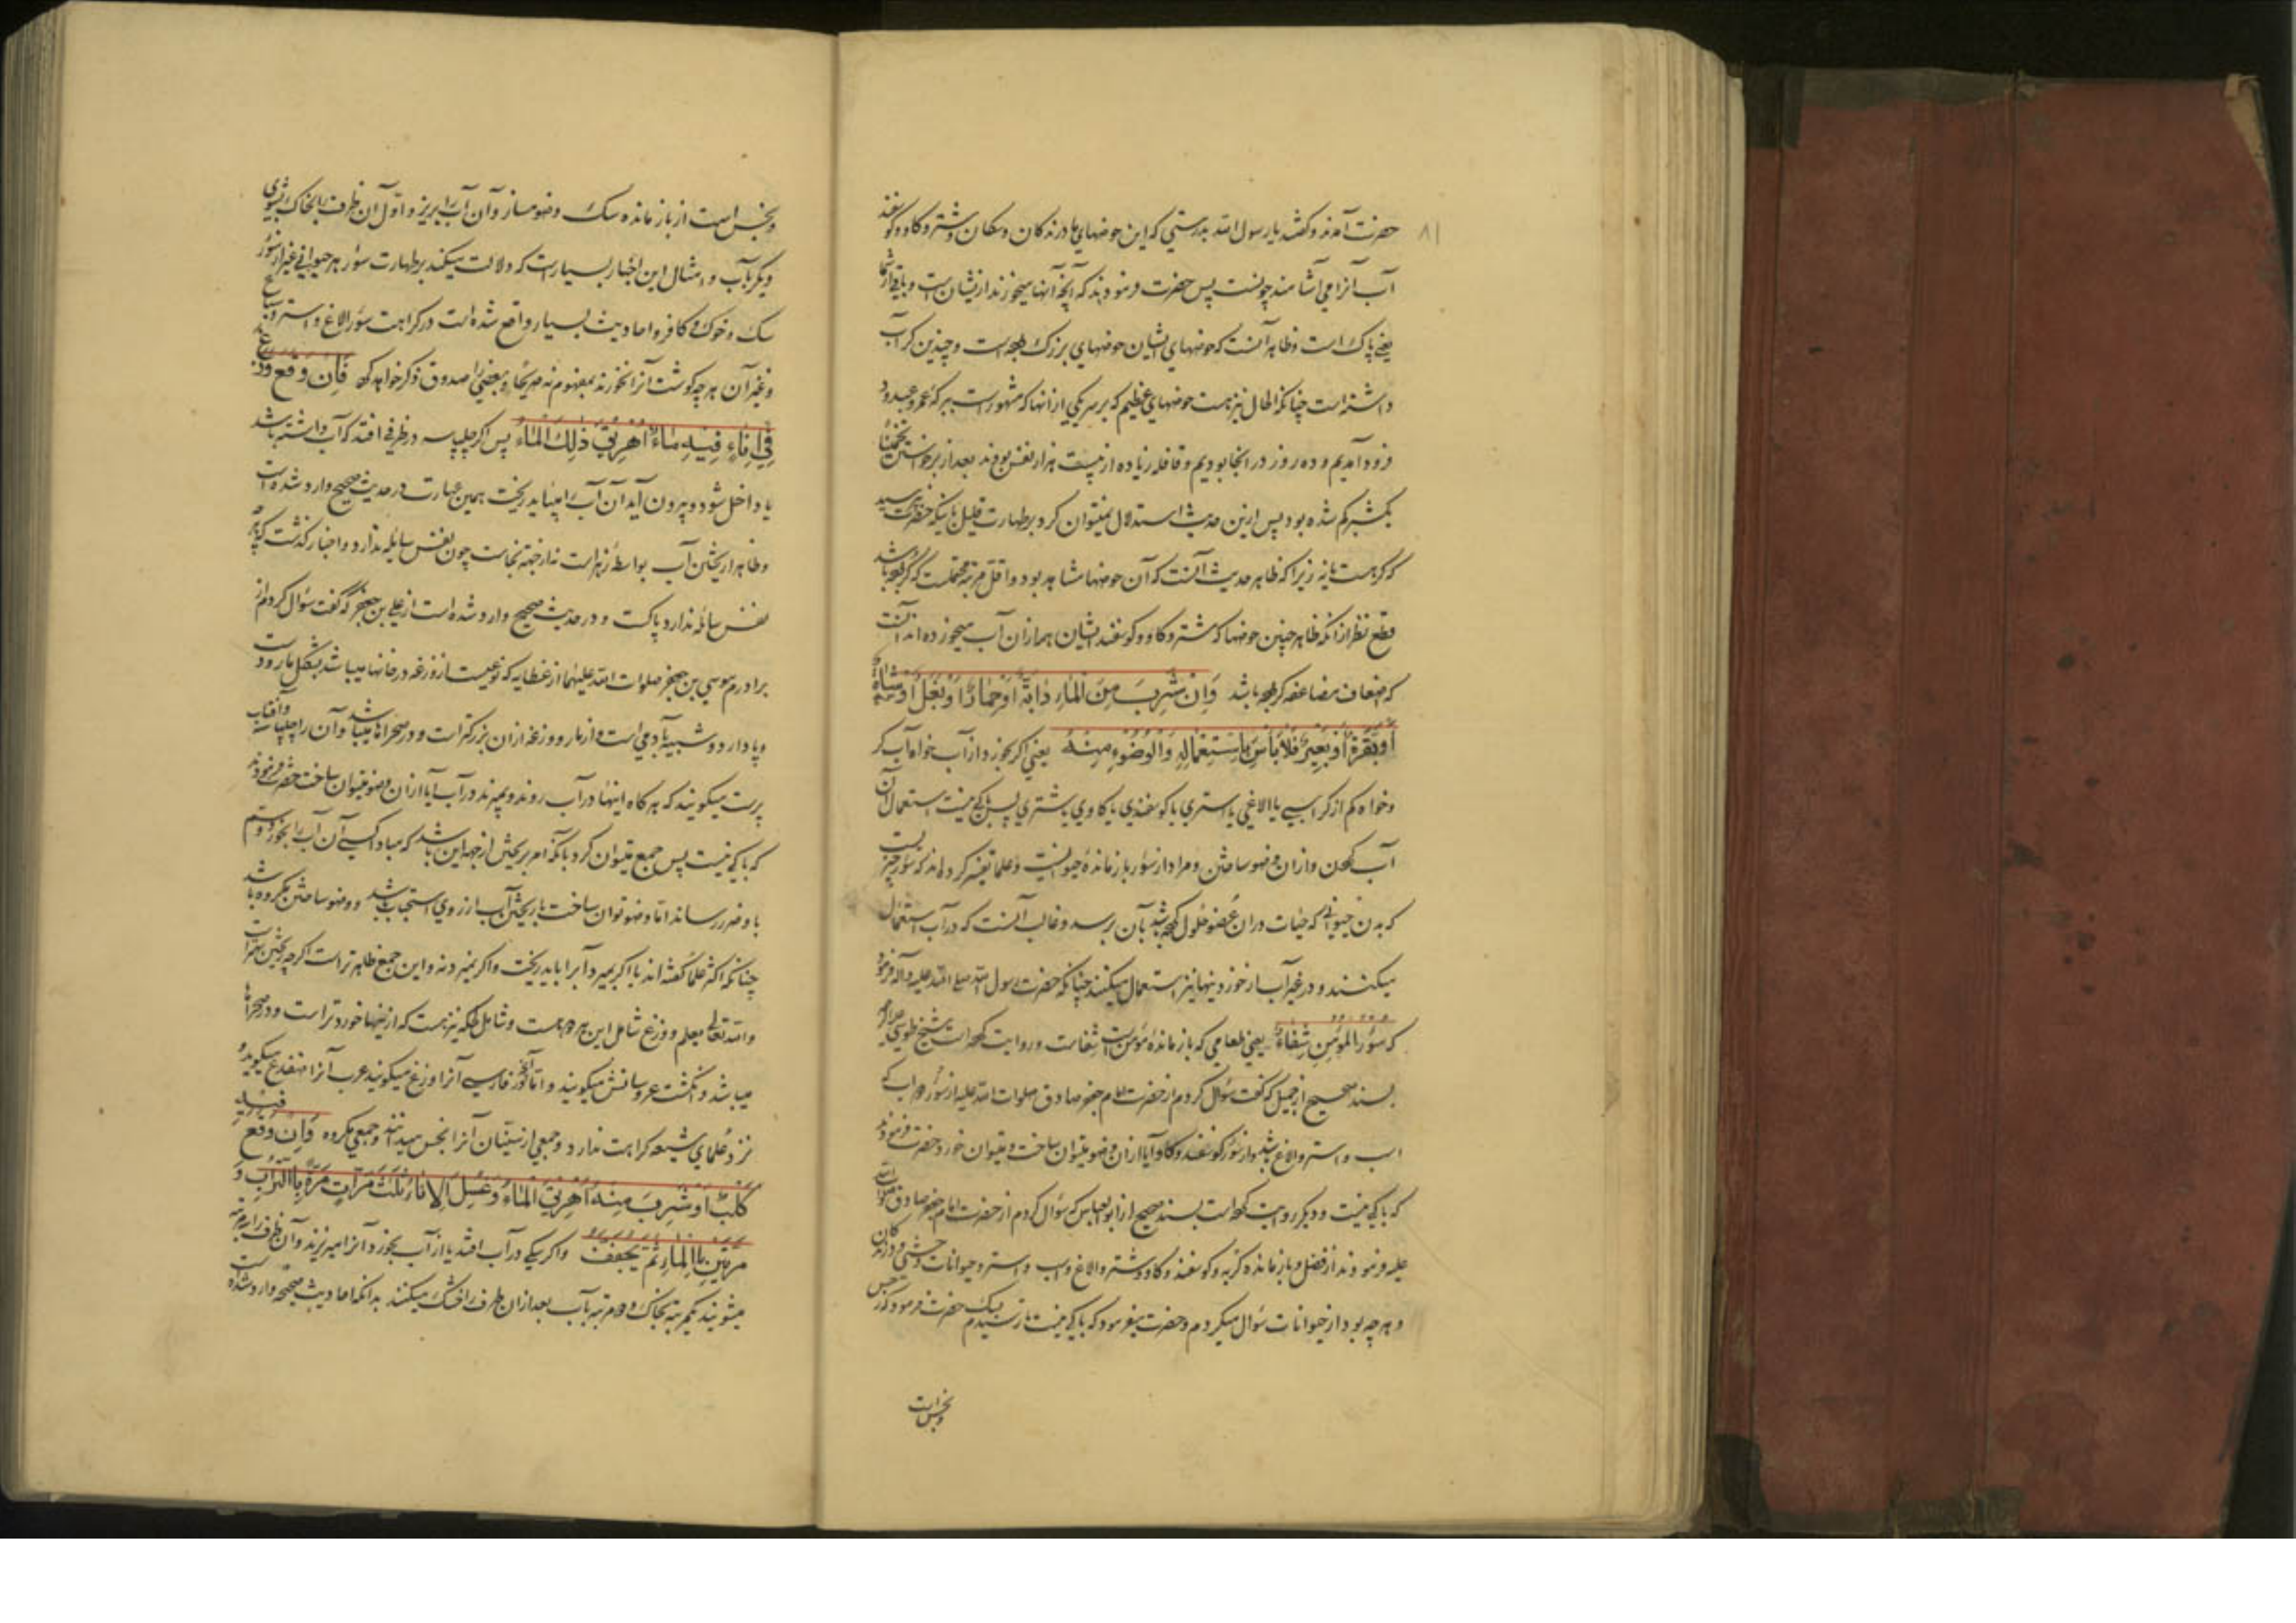 ۸۱
حضرت آمدند و گفتند یا رسول الله بدرستی که این حوضهای ما درندگان و سگان و شتر و گاو و گوسفند
آب آنرا می آشامند چونست پس حضرت فرمودند که آنچه آنها میخورند از ایشان است و باقی از شما
یعنی پاک است و ظاهر آنست که حوضهای ایشان حوضهای بزرگ بوده است و چندین کر آب
داشته است چنانکه الحال نیز هست حوضهای عظیم که بر سر یکی از آنها که مشهور است
فرود آمدیم و ده روز در آنجا بودیم و قافله زیاده از بیست هزار نفس بودند بعد از برخواستن تخمینا
یکشبر کم شده بود پس ازین حدیث استدلال نمیتوان کرد بر طهارت قلیل
که کر هست یا نه زیرا که ظاهر حدیث آنست که آن حوضها مشاهد بود و اقل مرتبه محتملست که کر بوده باشد
قطع نظر از آنکه ظاهر چنین حوضها که شتر و گاو و گوسفند ایشان همه از آن آب میخورده اند آنست
که اضعاف مضاعفه کر بوده باشد وَاِنْ شَرِبَ مِنَ الْمَاءِ دَابَّةٌ اَوْ حِمَارٌ اَوْ بَغْلٌ اَوْ شَاةٌ
اَوْ بَقَرَةٌ اَوْ بَعِيرٌ فَلَا بَأْسَ بِاسْتِعْمَالِهِ وَالْوُضُوءِ مِنْهُ یعنی اگر بخورد از آب خواه آب کر
و خواه کم از کر اسبی یا الاغی یا استری یا گوسفندی یا گاوی یا شتری پس باکی نیست استعمال آن
آب کردن و از آن وضو ساختن و مراد از سؤر باز مانده حیوانست و علما تفسیر کرده اند که سؤر چیزیست
که بدن حیوانی که حیات در آن عضو حلول کرده باشد بآن برسد و غالب آنست که در آب استعمال
میکنند و در غیر آب از خوردنیها نیز استعمال میکنند چنانکه حضرت رسول الله صلی الله علیه و آله فرمود
که سُؤْرُ الْمُؤْمِنِ شِفَاءٌ یعنی طعامی که باز مانده مؤمن است شفاست و روایت کرده است شیخ طوسی
بسند صحیح از جمیل که گفت سؤال کردم از حضرت امام جعفر صادق صلوات الله علیه از سؤر دواب که
اسب و استر و الاغ باشد و از سؤر گوسفند و گاو آیا از آن وضو میتوان ساخت و میتوان خورد حضرت فرمودند
که باکی نیست و دیگر روایت کرده است بسند صحیح از ابو العباس که سؤال کردم از حضرت امام جعفر صادق صلوات الله
علیه فرمودند از فضل و باز مانده گربه و گوسفند و گاو و شتر و الاغ و اسب و استر و حیوانات وحشی و درندگان
و هر چه بود از حیوانات سؤال میکردم و حضرت میفرمود که باکی نیست تا رسیدم بسگ حضرت فرمود که رجس
و نجس است
و نجس است از باز مانده سگ وضو مساز و آن آب را بریز و اول آن ظرف را بخاک بشوی
دیگر بآب و امثال این اخبار بسیار است که دلالت میکند بر طهارت سؤر هر حیوانی غیر از سؤر
سگ و خوک و کافر و احادیث بسیار واقع شده است در کراهت سؤر الاغ و استر و سباع
و غیر آن هر چه گوشت آنرا نخورند بمفهوم نه صریحا و بعضی را صدوق ذکر خواهد کرد فَاِنْ وَقَعَ وَزَغٌ
فِي اِنَاءٍ فِيهِ مَاءٌ اُهْرِيقَ ذٰلِكَ الْمَاءُ پس اگر چلپاسه در ظرفی افتد که آب داشته باشد
یا داخل شود و بیرون آید آن آب را میباید ریخت همین عبارت در حدیث صحیح وارد شده است
و ظاهرا ریختن آب بواسطه زهر است نه از جهة نجاست چون نفس سایله ندارد و اخبار گذشت که هر چه
نفس سائله ندارد پاکست و در حدیث صحیح وارد شده است از علی بن جعفر که گفت سؤال کردم از
برادرم موسی بن جعفر صلوات الله علیهما از عظایه که نوعیست از وزغه در خانها میباشد بشکل مار و دست
و پا دارد و شبیه بآدمی است و از مار و وزغه از آن بزرگتر است و در صحراها میباشد و آن را چلپاسه و آفتاب
پرست میگویند که هر گاه اینها در آب روند و نمیرند در آب آیا از آن وضو میتوان ساخت حضرت فرمودند
که باکی نیست پس جمع میتوان کرد بآنکه امر بریختن از جهة این باشد که مبادا کسی آن آب را بخورد و سم
باو ضرر رساند اما وضو توان ساخت یا ریختن آب از روی استحباب باشد و وضو ساختن مکروه باشد
چنانکه اکثر علما گفته اند یا اگر بمیرد آبرا باید ریخت و اگر نمیرد نه و این جمع ظاهر تر است اگر چه ریختن بهتر است
والله تعالی یعلم و وزغ شامل این هر دو هست و شامل نیز هست که از اینها خورد تر است و در صحراها
میباشد و انگشت عروسانش میگویند و اما آنچه در فارسی آنرا وزغ میگویند عرب آنرا ضفدع میگوید و
نزد علمای شیعه کراهت ندارد و جمعی از سنیان آنرا نجس میدانند و جمعی مکروه فَاِنْ وَقَعَ فِيهِ
كَلْبٌ اَوْ شَرِبَ مِنْهُ اُهْرِيقَ الْمَاءُ وَغُسِلَ الْاِنَاءُ ثَلٰثَ مَرَّاتٍ مَرَّةً بِالتُّرَابِ وَ
مَرَّتَيْنِ بِالْمَاءِ ثُمَّ يُجَفَّفُ و اگر سگی در آب افتد یا از آب بخورد آنرا میریزند و آن ظرف را سه مرتبه
میشویند یکمرتبه بخاک و دو مرتبه بآب بعد از آن ظرف را خشک میکنند بدانکه احادیث صحیحه وارد شده است